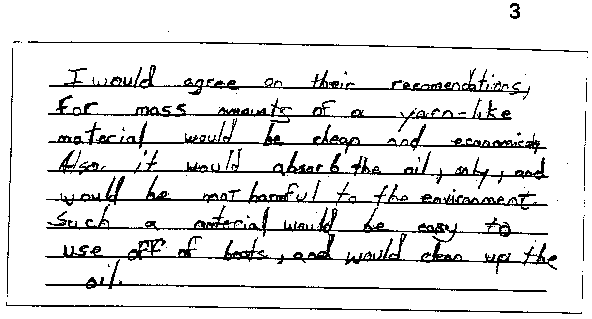 3
I would agree on their recomendations,
for mass amounts of a yarn-like
material would be cheap and economical.
Also, it would absorb the oil, only, and
would be not harmful to the environment.
Such a material would be easy to
use off of boats, and would clean up the
oil.